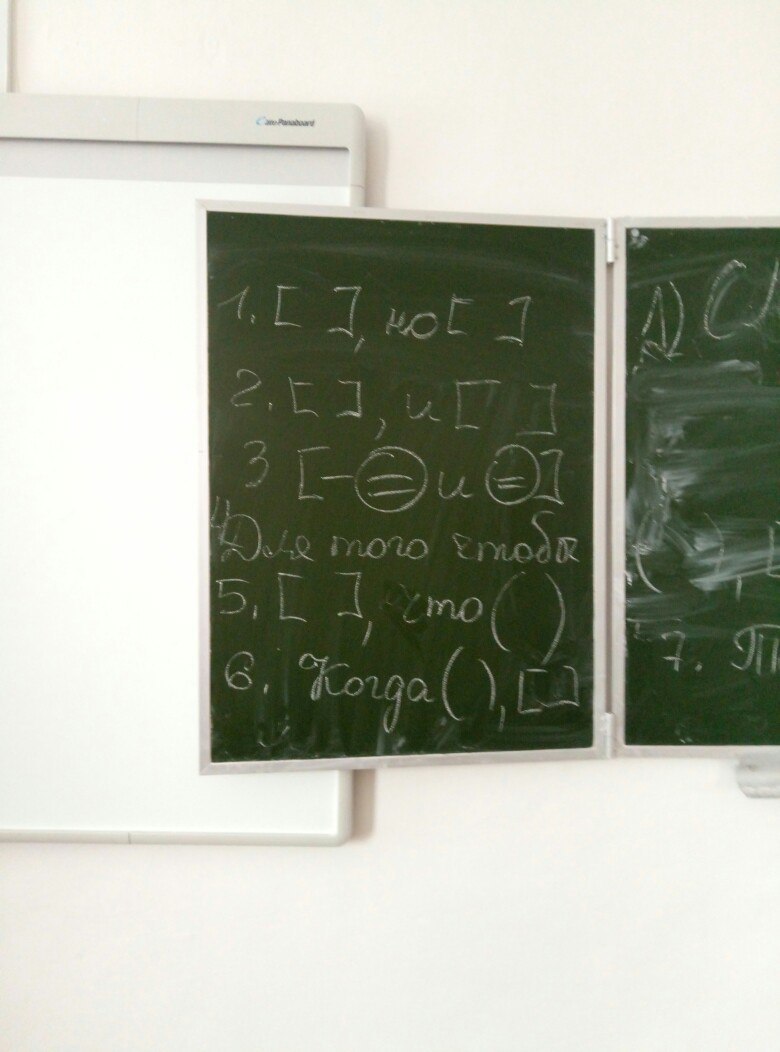 Panaboard
1. [ ], но [ ]
2. [ ], и [ ]
3 [- = и =]
4) Для того чтобы
5. [ ], что ( )
6. Когда ( ), [ ]
1) С
( ), [
7. П